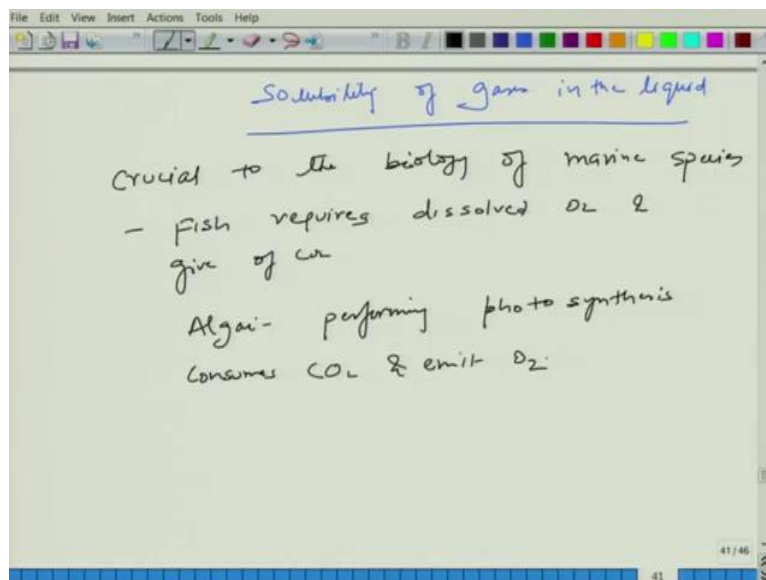 File Edit View Insert Actions Tools Help
Solubility of gases in the liquid
Crucial to the biology of marine species
- Fish requires dissolved O2 &
give of CO2
Algai- performing photosynthesis
Consumes CO2 & emit O2.
41/46
41